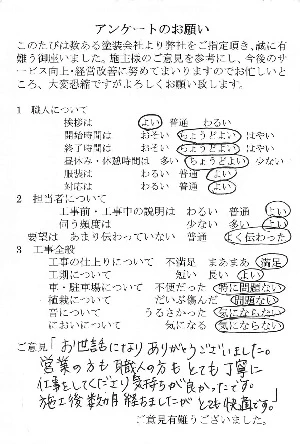 アンケートのお願い
このたびは数ある塗装会社より弊社をご指定頂き、誠に有
難う御座いました。施主様のご意見を参考にし、今後のサ
ービス向上・経営改善に努めてまいりますのでお忙しいと
ころ、大変恐縮ですがよろしくお願い致します。
1 職人について
挨拶は よい 普通 わるい
開始時間は おそい ちょうどよい はやい
終了時間は おそい ちょうどよい はやい
昼休み・休憩時間は 多い ちょうどよい 少ない
服装は わるい 普通 よい
対応は わるい 普通 よい
2 担当者について
工事前・工事中の説明は わるい 普通 よい
伺う頻度は 少ない 多い よい
要望は あまり伝わっていない 普通 よく伝わった
3 工事全般
工事の仕上りについて 不満足 まあまあ 満足
工期について 短い 長い よい
車・駐車場について 不便だった 特に問題ない
植栽について だいぶ傷んだ 問題ない
音について うるさかった 気にならない
においについて 気になる 気にならない
ご意見「お世話になりありがとうございました。
営業の方も職人の方もとても丁寧に
仕事をしてくださり気持ちが良かったです。
施工後数ヶ月経ちましたがとても快適です。」
ご意見有難うございました。